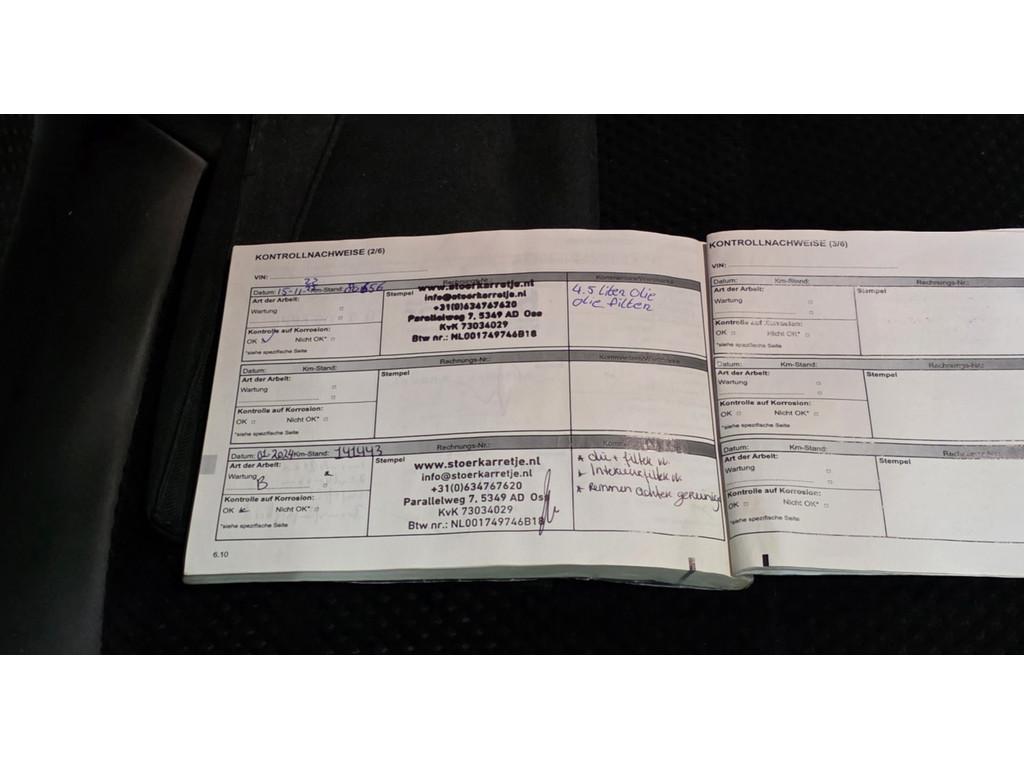 KONTROLLNACHWEISE (2/6)
VIN:
Datum: 15-11- Km-Stand:
Rechnungs-Nr.:
Art der Arbeit:
Wartung
Kontrolle auf Korrosion:
OK Nicht OK*
*siehe spezifische Seite
Stempel
www.stoerkarretje.nl
info@stoerkarretje.nl
+31(0)634767620
Parallelweg 7, 5349 AD Oss
KvK 73034029
Btw nr.: NL001749746B18
4.5 liter olie
olie filter
Datum: Km-Stand:
Rechnungs-Nr.:
Art der Arbeit:
Wartung
Kontrolle auf Korrosion:
OK Nicht OK*
*siehe spezifische Seite
Stempel
Datum: 01-2024 Km-Stand: 141443
Rechnungs-Nr.:
Art der Arbeit:
Wartung
B
Kontrolle auf Korrosion:
OK Nicht OK*
*siehe spezifische Seite
Stempel
www.stoerkarretje.nl
info@stoerkarretje.nl
+31(0)634767620
Parallelweg 7, 5349 AD Oss
KvK 73034029
Btw nr.: NL001749746B18
* olie + filter
* Interieurfilter
* Remmen achter gereinigd
6.10
KONTROLLNACHWEISE (3/6)
VIN:
Datum: Km-Stand:
Rechnungs-Nr.:
Art der Arbeit:
Wartung
Kontrolle auf Korrosion:
OK Nicht OK*
*siehe spezifische Seite
Stempel
Datum: Km-Stand:
Rechnungs-Nr.:
Art der Arbeit:
Wartung
Kontrolle auf Korrosion:
OK Nicht OK*
*siehe spezifische Seite
Stempel
Datum: Km-Stand:
Art der Arbeit:
Wartung
Kontrolle auf Korrosion:
OK Nicht OK*
*siehe spezifische Seite
Stempel